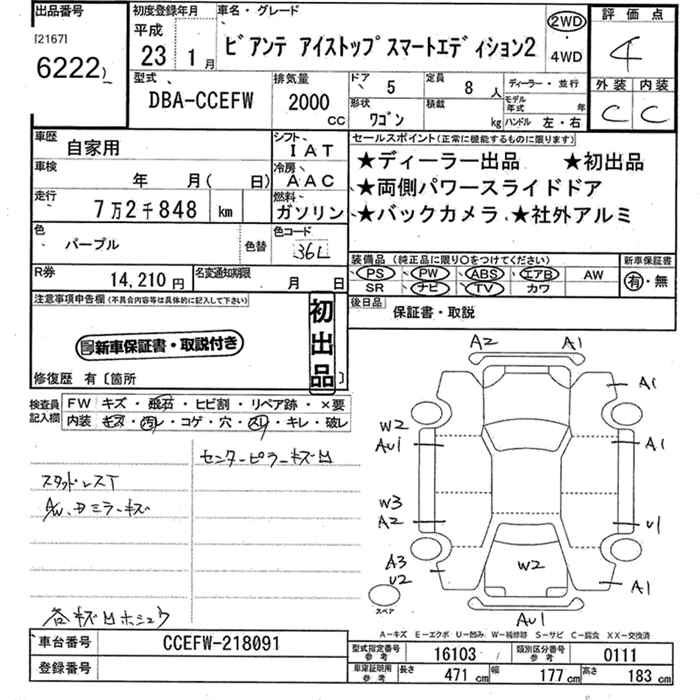 出品番号
[2167]
6222
初度登録年月
平成
23 1月
車名・グレード
ビアンテ アイストップスマートエディション2
2WD
・
4WD
評価点
4
外装 内装
C C
型式
DBA-CCEFW
排気量
2000
CC
ドア 5
定員 8人
ディーラー・並行
形状
ワゴン
積載
kg
モデル年式 年
ハンドル 左・右
車歴
自家用
シフト
IAT
車検
年 月( 日)
冷房
AAC
走行
7万2千848 km
燃料
ガソリン
色
パープル
色替
色コード
36L
R券
14,210円
名変通知期限
月 日
セールスポイント(正常に機能するものに限ります)
★ディーラー出品 ★初出品
★両側パワースライドドア
★バックカメラ★社外アルミ
装備品(純正品に限り○をつけてください)
PS PW ABS エアB AW
SR ナビ TV カワ
新車保証書
有・無
後日品
保証書・取説
注意事項申告欄(不具合内容等は具体的に記入して下さい)
新車保証書・取説付き
初出品
修復歴 有〔箇所 〕
検査員記入欄
FW キズ・飛石・ヒビ割・リペア跡・×要
内装 キズ・汚レ・コゲ・穴・スレ・キレ・破レ
センターピラーキズ凹
スタッドレスT
AW.ドミラーキズ
各キズ凹ホシュウ
A2 A1
A1
W2
AU1
A1
W3
A2
U1
A3
U2
W2
A1
スペア
AU1
A-キズ E-エクボ U-凹み W-補修跡 S-サビ C-腐食 XX-交換済
車台番号
CCEFW-218091
登録番号
型式指定番号 参考
16103
類別区分番号 参考
0111
車庫証明用 参考
長さ 471cm
幅 177cm
高さ 183cm